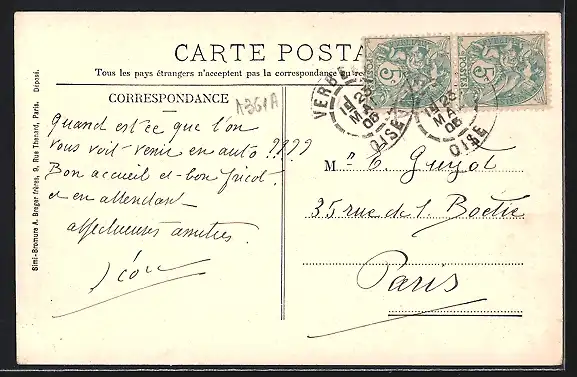 CARTE POSTA
Tous les pays étrangers n'acceptent pas la correspondance au re
CORRESPONDANCE
A361A
Quand est ce que l'on
vous voit venir en auto ????
Bon accueil et bon fricot
et en attendant
affectueuses amitiés
M E. Guyot
35 rue de l. Boëtie
Paris
VERBE
1E 23
MA
06
OISE
1E 23
MA
06
OISE
5
5
Simi-Bromure A. Breger frères, 9, Rue Thénard, Paris. Déposé.